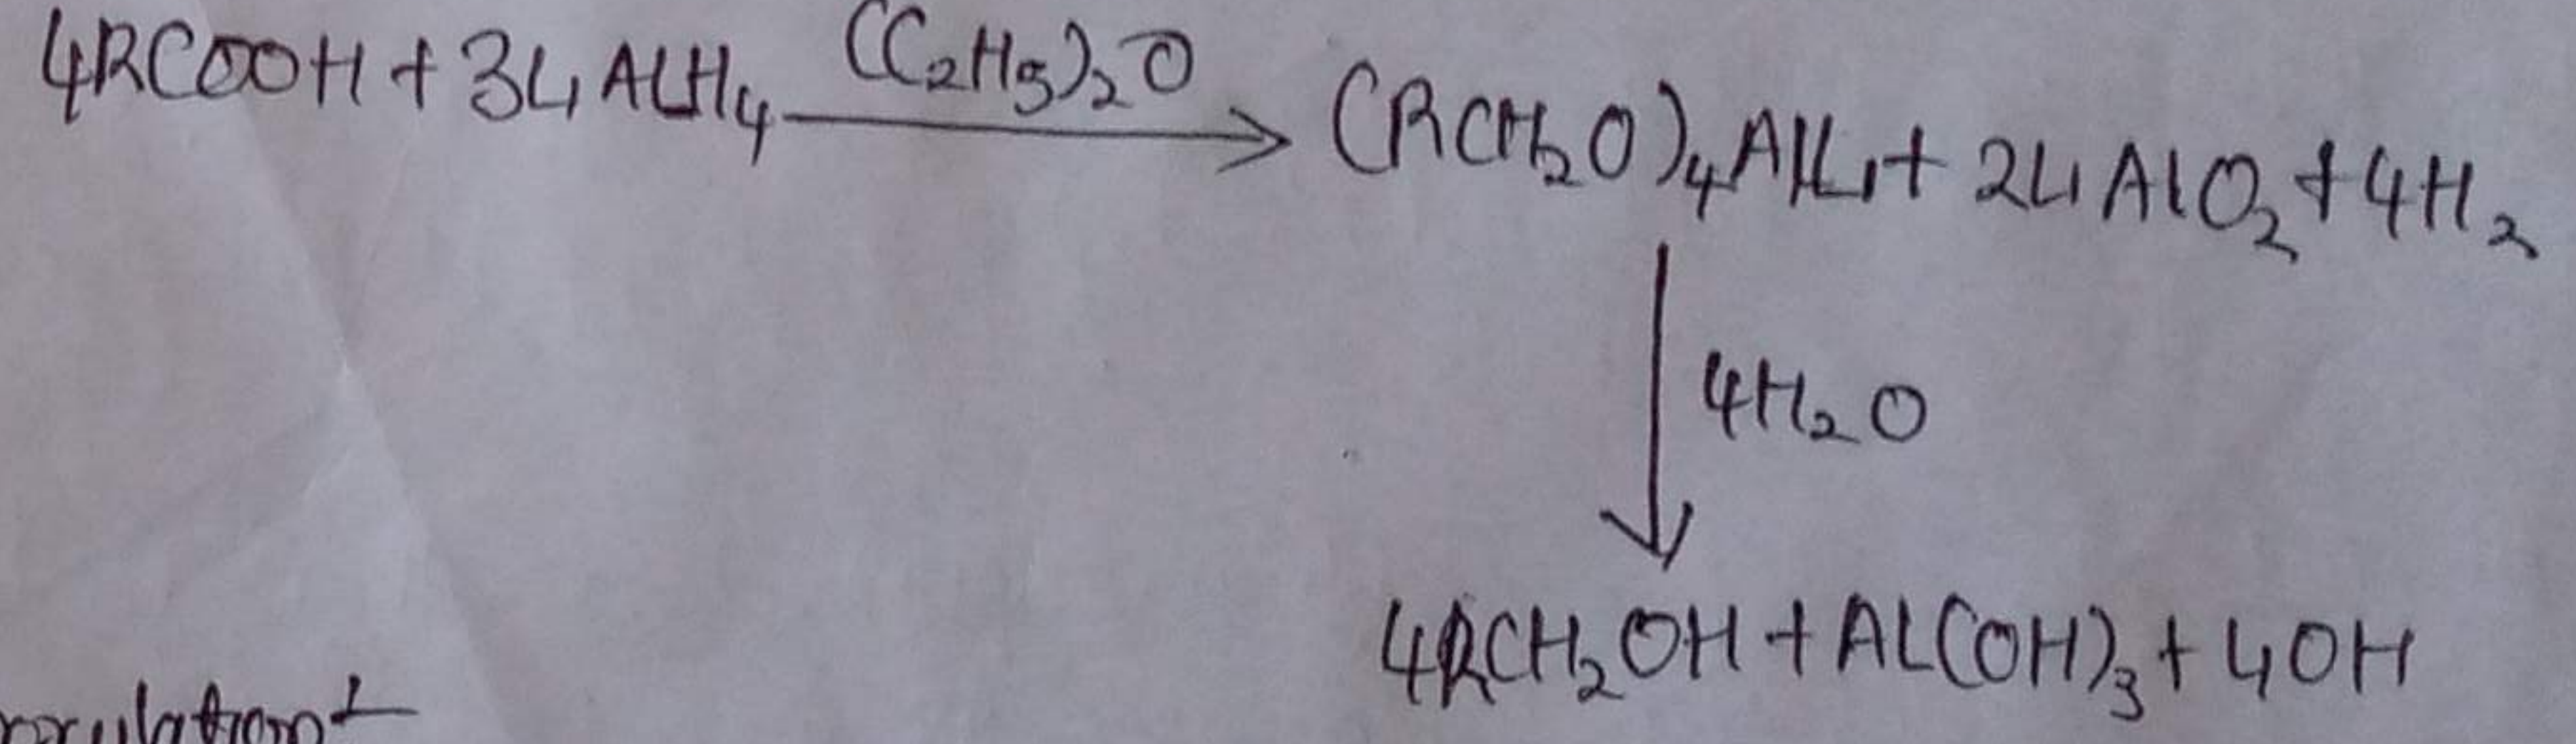 4RCOOH + 3Li AlH4 (C2H5)2O → (RCH2O)4AlLi + 2Li AlO2 + 4H2
↓ 4H2O
4RCH2OH + Al(OH)3 + LiOH